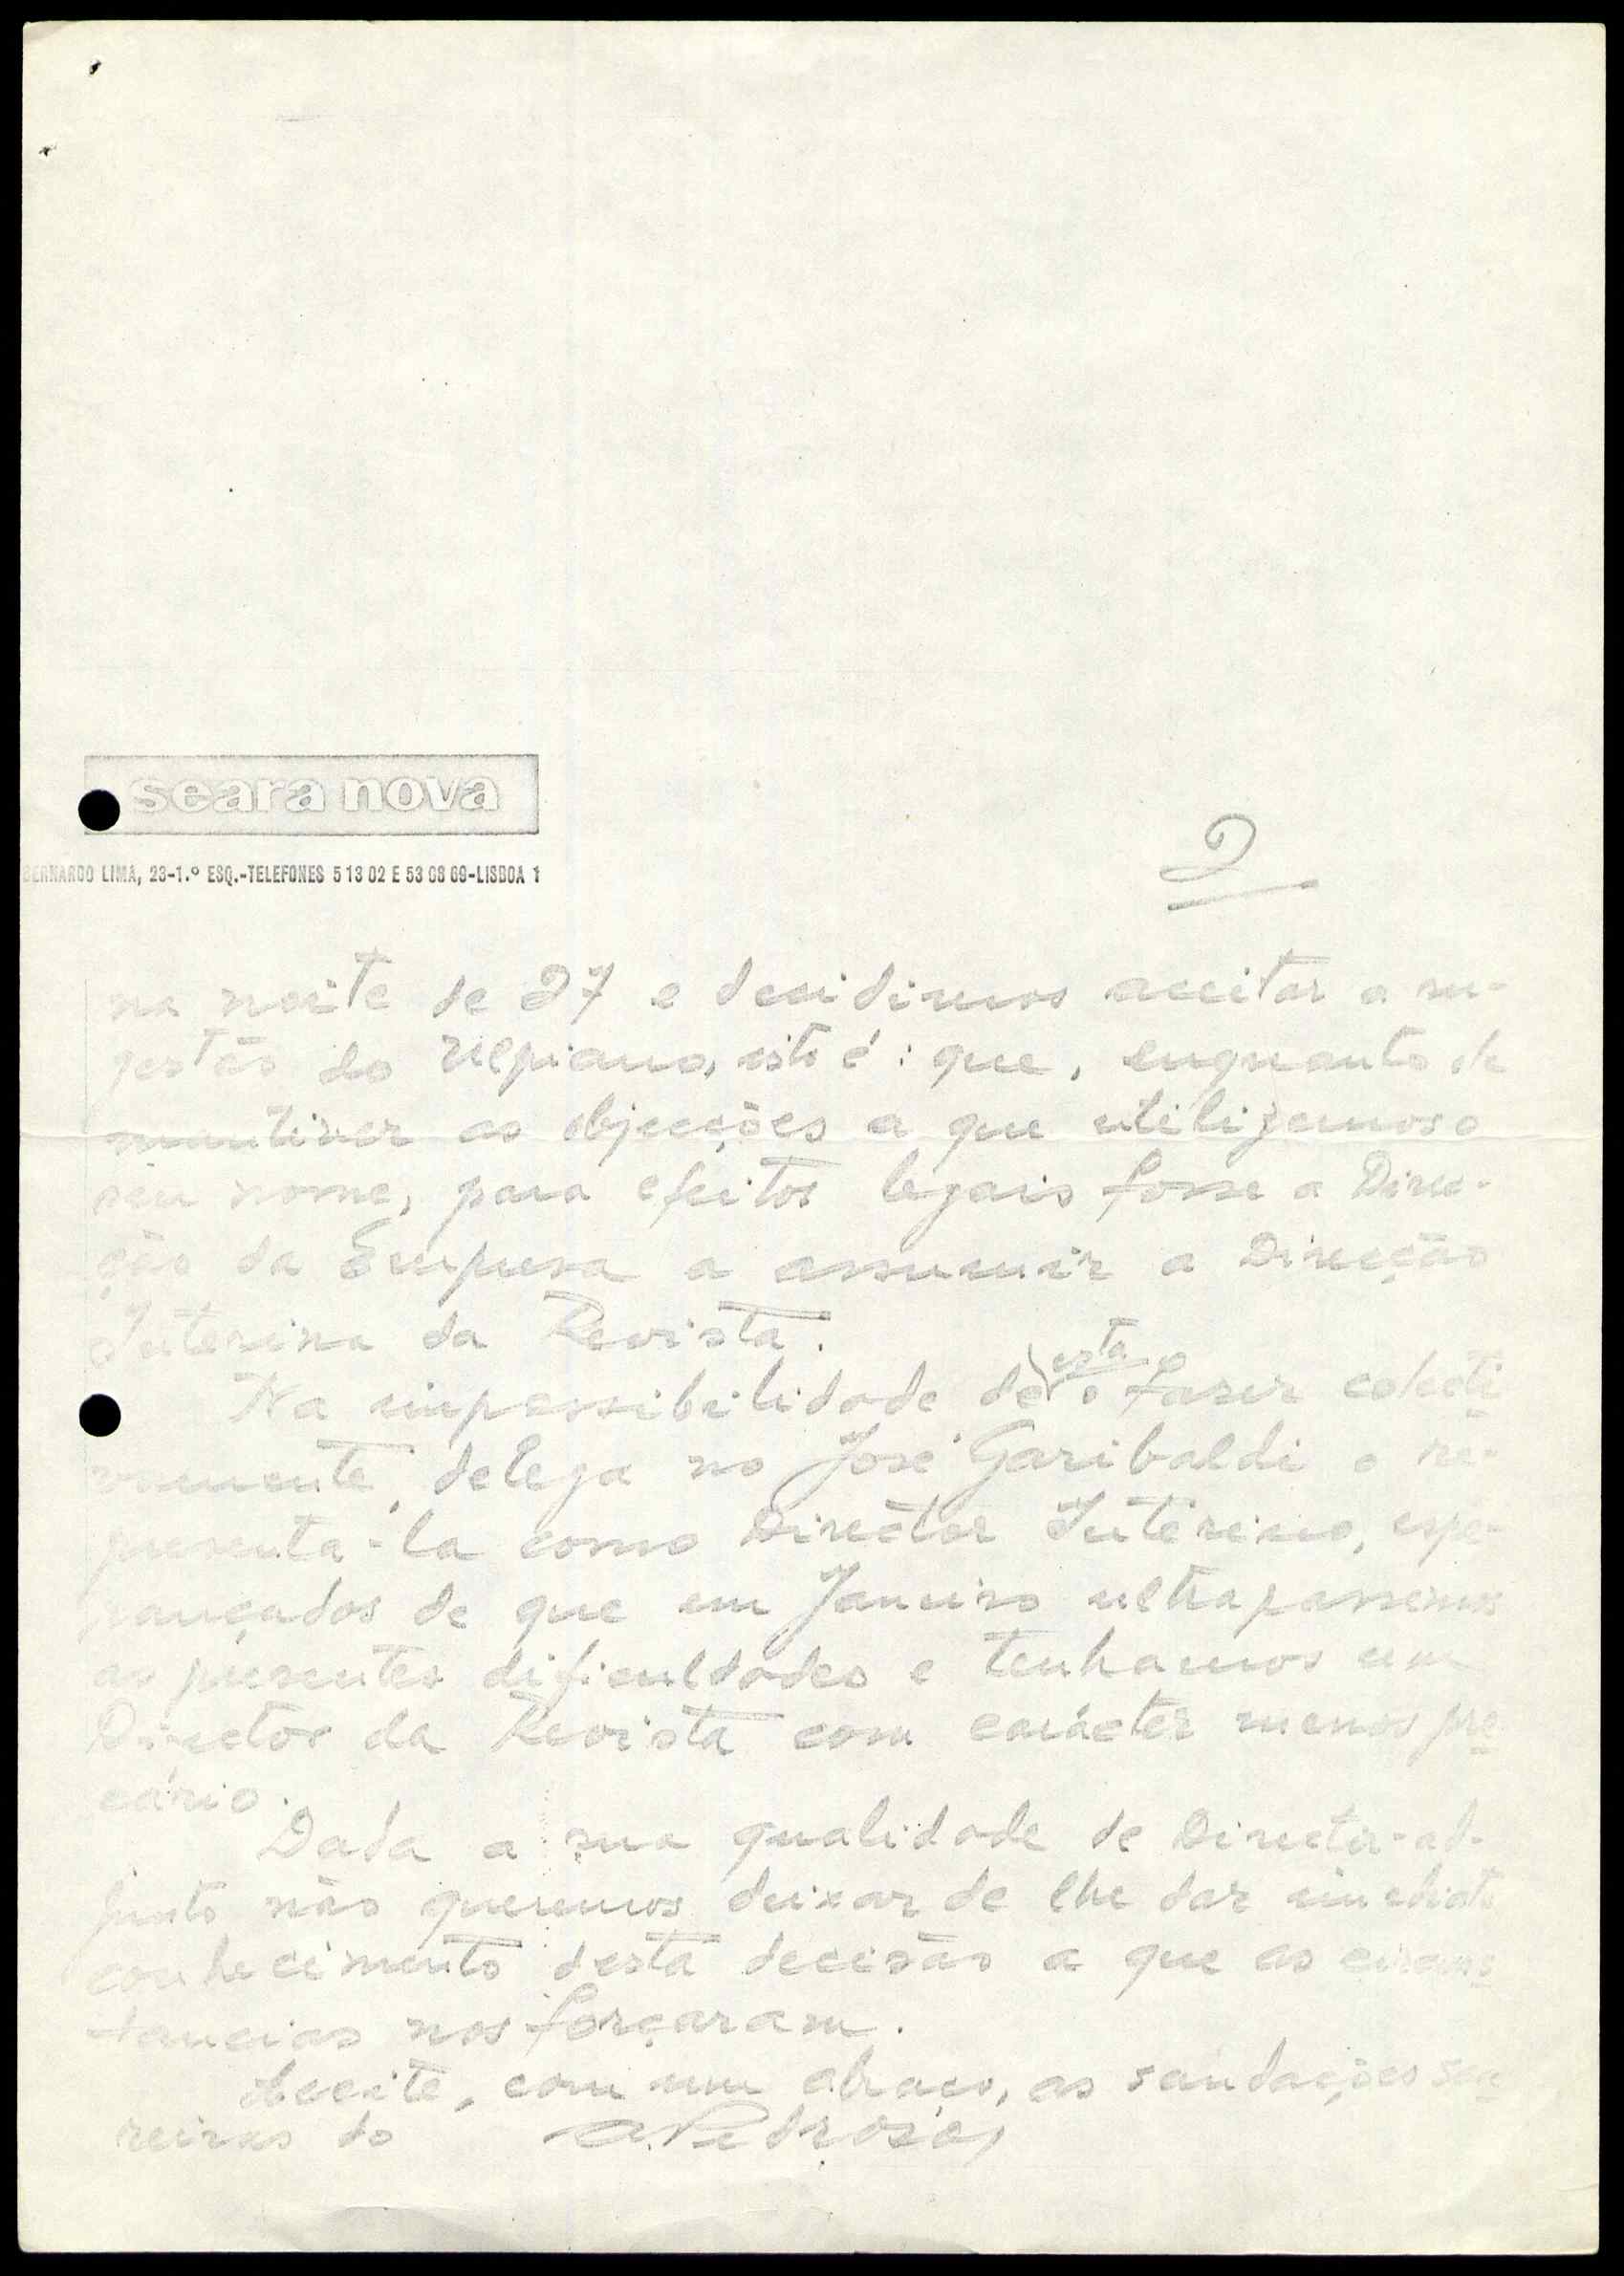 seara nova
BERNARDO LIMA, 23-1.º ESQ.-TELEFONES 5 13 02 E 53 08 69-LISBOA 1
2
na noite de 27 e decidimos aceitar a su-
gestão do Ulpiano, isto é: que, enquanto se
mantiver as objecções a que utilizemos o
seu nome, para efeitos legais fosse a Direc-
ção da Empresa a assumir a Direcção
Interina da Revista.
Na impossibilidade de esta o fazer colecti
vamente, delega no José Garibaldi o re-
presentá-la como Director Interino, espe-
rançados de que em Janeiro ultrapassemos
as presentes dificuldades e tenhamos um
Director da Revista com carácter menos pre
cário.
Dada a sua qualidade de Director-ad-
junto não queremos deixar de lhe dar imediato
conhecimento desta decisão a que as circuns
tancias nos forçaram.
Aceite, com um abraço, as saudações sea
reiras do A. Pedrosa,